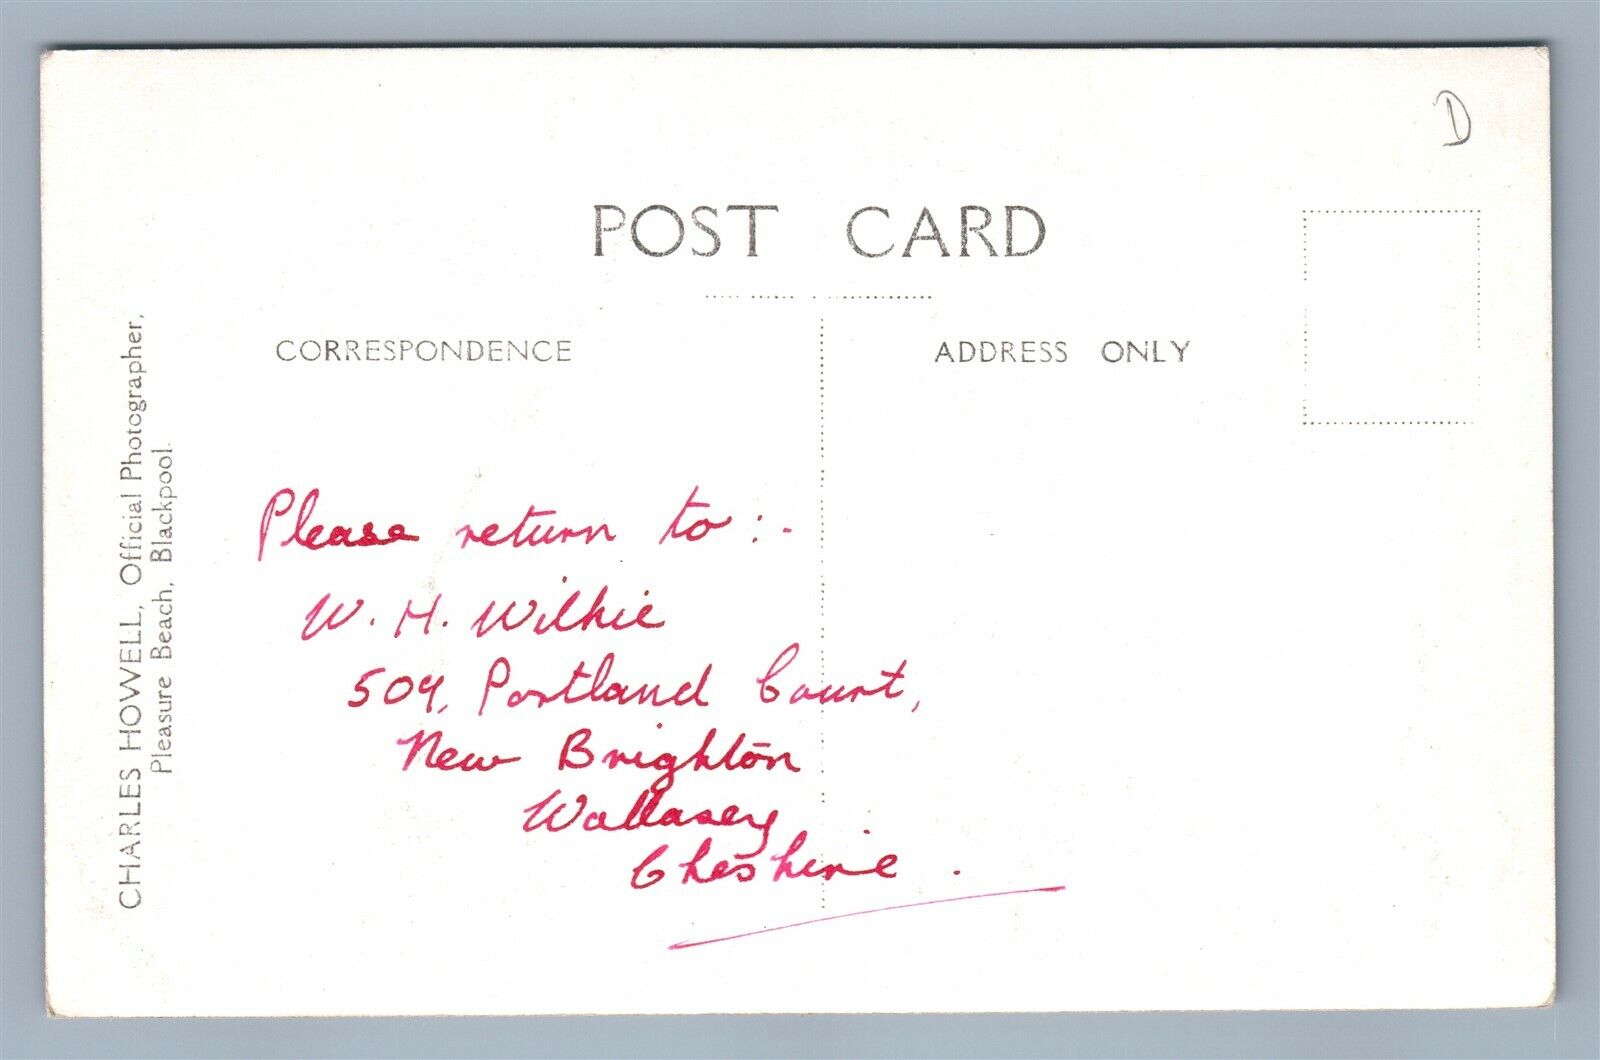 D
POST CARD
CORRESPONDENCE
ADDRESS ONLY
CHARLES HOWELL, Official Photographer,
Pleasure Beach, Blackpool.
Please return to :-
W. H. Wilkie
509, Portland Court,
New Brighton
Wallasey
Cheshire .